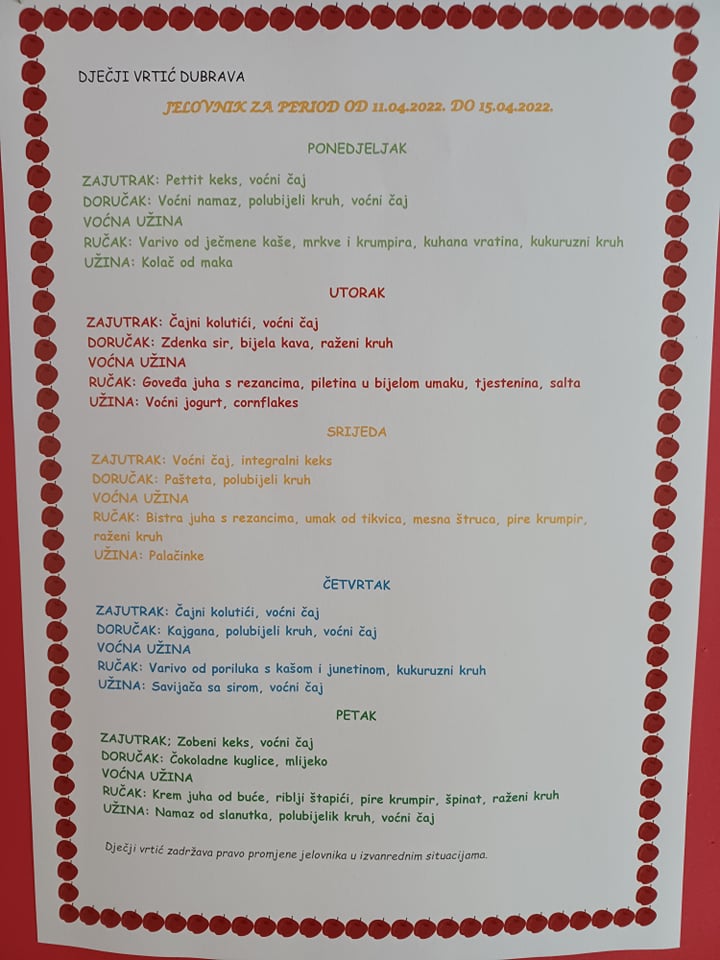 DJEČJI VRTIĆ DUBRAVA
JELOVNIK ZA PERIOD OD 11.04.2022. DO 15.04.2022.
PONEDJELJAK
ZAJUTRAK: Pettit keks, voćni čaj
DORUČAK: Voćni namaz, polubijeli kruh, voćni čaj
VOĆNA UŽINA
RUČAK: Varivo od ječmene kaše, mrkve i krumpira, kuhana vratina, kukuruzni kruh
UŽINA: Kolač od maka
UTORAK
ZAJUTRAK: Čajni kolutići, voćni čaj
DORUČAK: Zdenka sir, bijela kava, raženi kruh
VOĆNA UŽINA
RUČAK: Goveđa juha s rezancima, piletina u bijelom umaku, tjestenina, salta
UŽINA: Voćni jogurt, cornflakes
SRIJEDA
ZAJUTRAK: Voćni čaj, integralni keks
DORUČAK: Pašteta, polubijeli kruh
VOĆNA UŽINA
RUČAK: Bistra juha s rezancima, umak od tikvica, mesna štruca, pire krumpir,
raženi kruh
UŽINA: Palačinke
ČETVRTAK
ZAJUTRAK: Čajni kolutići, voćni čaj
DORUČAK: Kajgana, polubijeli kruh, voćni čaj
VOĆNA UŽINA
RUČAK: Varivo od poriluka s kašom i junetinom, kukuruzni kruh
UŽINA: Savijača sa sirom, voćni čaj
PETAK
ZAJUTRAK; Zobeni keks, voćni čaj
DORUČAK: Čokoladne kuglice, mlijeko
VOĆNA UŽINA
RUČAK: Krem juha od buće, riblji štapići, pire krumpir, špinat, raženi kruh
UŽINA: Namaz od slanutka, polubijelik kruh, voćni čaj
Dječji vrtić zadržava pravo promjene jelovnika u izvanrednim situacijama.